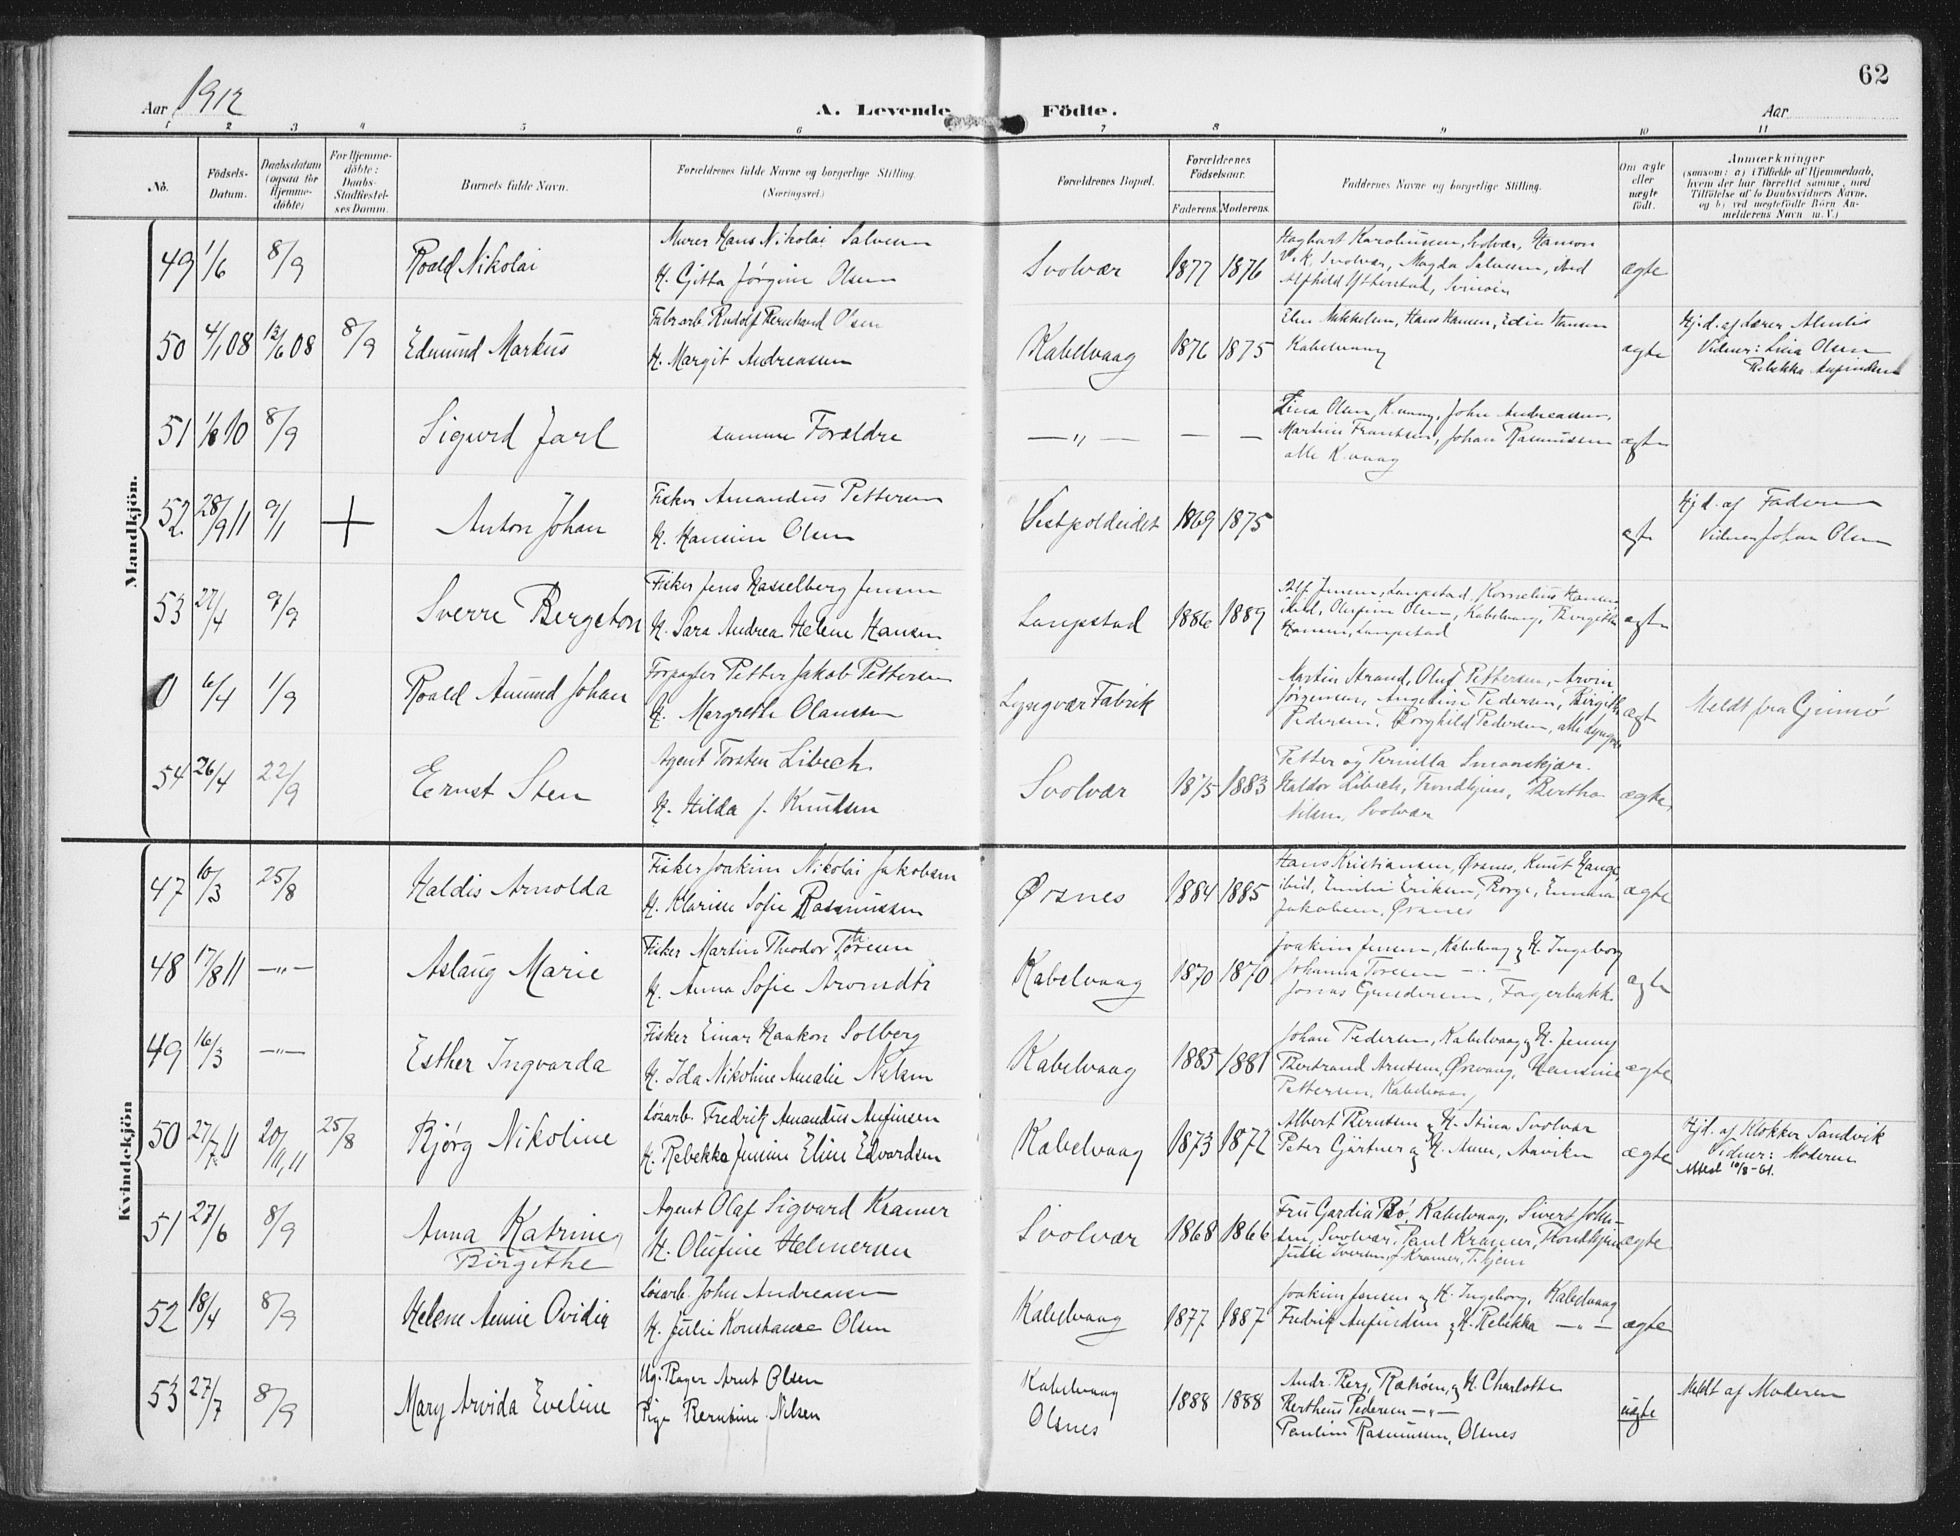 62
Aar 1912
A. Levende Födte.
Aar
1 2 3 4 5 6 7 8 9 10 11
No.
Födsels-Datum.
Daabsdatum (ogsaa for Hjemme-döbte)
For Hjemme-döbte: Daabs-Stadfæstel-ses Datum.
Barnets fulde Navn.
Forældrenes fulde Navne og borgerlige Stilling. (Næringsvei.)
Forældrenes Bopæl.
Forældrenes Födselsaar.
Faderens. Moderens.
Faddernes Navne og borgerlige Stilling.
Om ægte eller uægte födt.
Anmærkninger
(saasom: a) i Tilfælde af Hjemmedaab, hvem der har forrettet samme, med Tilföielse af to Daabsvidners Navne, og b) ved uægtefödte Börn Anmelderens Navn m. V.)
Mandkjön.
49 1/6 8/9 Roald Nikolai
Murer Hans Nikolai Salvesen
H. Gitta Jørgine Olsen
Svolvær 1877 1876
Svolvær, Magda Salvesen, ibid
ægte
50 4/1 08 12/6 08 8/9 Edmund Markus
Fabrarb. Rudolf Bernhard Olsen
H. Margit Andreassen
Kabelvaag 1876 1875
Elen Mikkelsen, Hans Hansen, Edin Hansen
Kabelvaag
ægte
Hjd. af Lærer
Vidner: Lina Olsen
Rebekka Anfindsen
51 1/8 10 8/9 Sigurd Jarl
samme Forældre
— " — — —
Lina Olsen, K.vaag, John Andreassen,
Martin Frantsen, Johan Rasmussen
alle K.vaag
ægte
52. 28/9 11 9/1 + Anton Johan
Fisker Amandus Pettersen
H. Hansine Olsen
Vestpoldeidet 1869 1875
ægte
Hjd. af Faderen
Vidner Johan Olsen
53 27/4 9/9 Sverre Bergeton
Fisker Jens Hasselberg Jensen
H. Sara Andrea Helene Hansen
Laupstad 1886 1889
Alf Jensen, Laupstad, Kornelius Hansen
ibid, Olufine Olsen, Kabelvaag, Birgitte
Hansen, Laupstad
ægte
0 6/4 1/9 Roald Amund Johan
Forpagter Petter Jakob Pettersen
H. Margrethe Olaussen
Lyngvær Fabrik
Martin Strand, Oluf Pettersen, Arvin
Jørgensen, Angeline Pedersen, Birgitte
Pedersen, Borghild Pedersen, alle Lyngvær
ægte
Meldt fra Gimsö
54 26/4 22/9 Ernst Sten
Agent Torsten Libech
H. Hilda J. Knudsen
Svolvær 1875 1883
Petter og Pernilla Smaaskjær.
Haldor Libech, Trondhjem, Bertha
Nilsen, Svolvær
ægte
Kvindekjön
47 10/3 25/8 Haldis Arnolda
Fisker Joakim Nikolai Jakobsen
H. Klarisse Sofie Rasmussen
Ørsnes 1884 1885
Hans Kristiansen, Ørsnes, Knut Hauge
ibid, Emilie Eriksen, Borge, Emma
Jakobsen, Ørsnes
ægte
48 17/8 11 —"— Aslaug Marie
Fisker Martin Theodor Thoresen
H. Anna Sofie Arondts
Kabelvaag 1870 1870
Joakim Jensen, Kabelvaag og H. Ingeborg
Johanna Toresen — " —
Jonas Gundersen, Fagerbakk
ægte
49 16/3 —"— Esther Ingvarda
Fisker Einar Haakon Solberg
H. Ida Nikoline Amalie Nilsen
Kabelvaag 1885 1881
Johan Pedersen, Kabelvaag og H. Jenny
Bertrand Arntsen, Ørsvaag, Hansine
Pettersen, Kabelvaag
ægte
50 27/7 11 20/11 11 25/8 Bjørg Nikoline
Løsarb. Fredrik Amandus Anfinsen
H. Rebekka Jensine Eline Edvardsen
Kabelvaag 1873 1872
Albert Berntsen og H. Stina Svolvær
Peter Gjärtner og H. Anna, Aaviken
ægte
Hjd. af Klokker Sandvik
Vidner: Moderen
Attest 10/8-61.
51 27/6 8/9 Anna Katrine
Birgithe
Agent Olaf Sigvard Kramer
H. Olufine Helmersen
Svolvær 1868 1866
Fru Gardia Bö, Kabelvaag, Sivert John-
sen, Svolvær, Paul Kramer, Trondhjem
Julie Iversen, J. Kramer, T.hjem
ægte
52 18/4 8/9 Helene Annie Ovidia
Løsarb. John Andreassen
H. Julie Konstanse Olsen
Kabelvaag 1877 1887
Joakim Jensen og H. Ingeborg, Kabelvaag
Fredrik Anfindsen og H. Rebekka — " —
ægte
53 27/7 8/9 Mary Arvida Eveline
Ug. Bager Arnt Olsen
Pige Berntine Nilsen
Kabelvaag
Olsnes
1888 1888
Andr. Berg, Rækøen, og H. Charlotte
Bertheus Pedersen — " —
Pauline Rasmussen, Olsnes
uægte
Meldt af Moderen